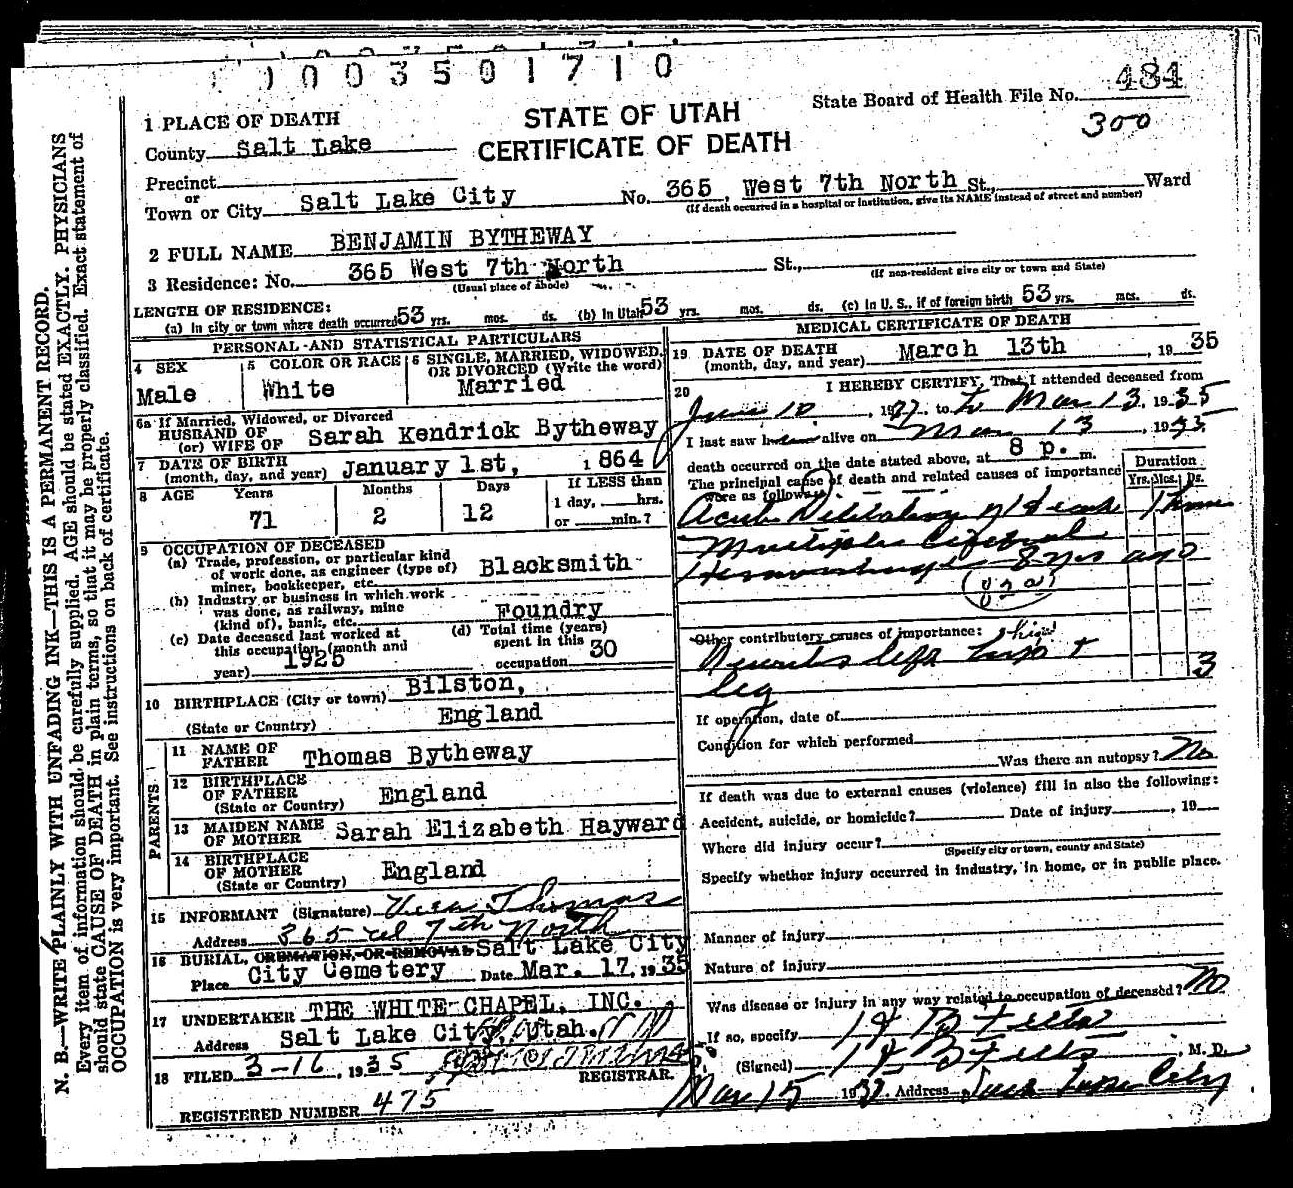 1003501710
484
STATE OF UTAH
CERTIFICATE OF DEATH
State Board of Health File No.
300
1 PLACE OF DEATH
County Salt Lake
Precinct
or
Town or City Salt Lake City No. 365 West 7th North St., Ward
(If death occurred in a hospital or institution, give its NAME instead of street and number)
2 FULL NAME BENJAMIN BYTHEWAY
3 Residence: No. 365 West 7th North St.,
(Usual place of abode) (If non-resident give city or town and State)
LENGTH OF RESIDENCE:
(a) In city or town where death occurred 53 yrs. mos. ds. (b) In Utah 53 yrs. mos. ds. (c) In U. S., if of foreign birth 53 yrs. mos. ds.
PERSONAL AND STATISTICAL PARTICULARS
4 SEX
Male
5 COLOR OR RACE
White
6 SINGLE, MARRIED, WIDOWED,
OR DIVORCED (Write the word)
Married
6a If Married, Widowed, or Divorced
HUSBAND OF
(or) WIFE OF Sarah Kendrick Bytheway
7 DATE OF BIRTH
(month, day, and year) January 1st, 1864
8 AGE Years Months Days If LESS than
71 2 12 1 day, hrs.
or min.?
9 OCCUPATION OF DECEASED
(a) Trade, profession, or particular kind
of work done, as engineer (type of)
miner, bookkeeper, etc. Blacksmith
(b) Industry or business in which work
was done, as railway, mine
(kind of), bank, etc. Foundry
(c) Date deceased last worked at
this occupation (month and
year) 1925
(d) Total time (years)
spent in this
occupation 30
10 BIRTHPLACE (City or town) Bilston,
(State or Country) England
PARENTS
11 NAME OF
FATHER Thomas Bytheway
12 BIRTHPLACE
OF FATHER England
(State or Country)
13 MAIDEN NAME
OF MOTHER Sarah Elizabeth Hayward
14 BIRTHPLACE
OF MOTHER England
(State or Country)
15 INFORMANT (Signature) Vera Thomas
Address 365 W 7th North
16 BURIAL, CREMATION, OR REMOVAL Salt Lake City
Place City Cemetery Date Mar. 17, 1935
17 UNDERTAKER THE WHITE CHAPEL, INC.
Address Salt Lake City, Utah.
18 FILED 3-16, 1935
REGISTRAR.
REGISTERED NUMBER 475
MEDICAL CERTIFICATE OF DEATH
19 DATE OF DEATH
(month, day, and year) March 13th, 1935
20 I HEREBY CERTIFY, That I attended deceased from
June 10, 1927 to Mar 13, 1935
I last saw him alive on Mar 13, 1935
death occurred on the date stated above, at 8 p. m.
The principal cause of death and related causes of importance
were as follows:
Duration
Yrs. Mos. Ds.
Acute Dilitation of Heart
Multiple Cerebral
Hemorrhage 8 yrs ago
Other contributory causes of importance:
Neuritis left
leg 3
If operation, date of
Condition for which performed
Was there an autopsy? No
If death was due to external causes (violence) fill in also the following:
Accident, suicide, or homicide? Date of injury, 19
Where did injury occur?
(Specify city or town, county and State)
Specify whether injury occurred in industry, in home, or in public place.
Manner of injury
Nature of injury
Was disease or injury in any way related to occupation of deceased? No
If so, specify
(Signed) M. D.
Mar 15 1935 Address Salt Lake City
N. B.—WRITE PLAINLY WITH UNFADING INK—THIS IS A PERMANENT RECORD.
Every item of information should be carefully supplied. AGE should be stated EXACTLY. PHYSICIANS
should state CAUSE OF DEATH in plain terms, so that it may be properly classified. Exact statement of
OCCUPATION is very important. See instructions on back of certificate.